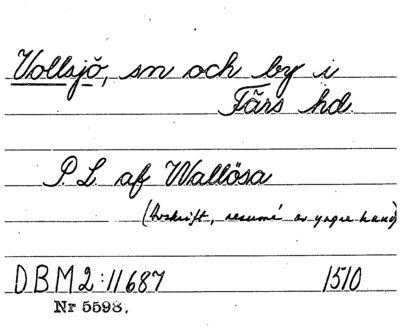 Vollsjö, sn och by i
Färs hd.
P. L. af Wallösa
(Avskrift, resumé av yngre hand)
DBM2:11687 1510
Nr 5598.